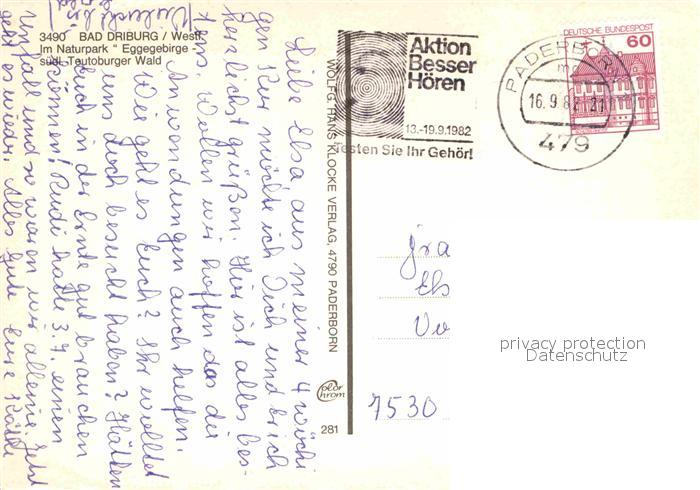 3490 BAD DRIBURG / Westf.
Im Naturpark " Eggegebirge -
südl. Teutoburger Wald
Liebe Elsa aus meiner 4 wöchi
gen Kur möchte ich Dich und Erich
herzlichst grüßen. Hier ist alles bes-
tens Wollen wir hoffen das die
Anwendungen auch helfen.
Wie geht es Euch? Ihr wolltet
uns doch besucht haben? Hätten
Euch in der Ernte gut brauchen
können! Rudi hatte 3.7. einen
Unfall und so waren wir alleine jetzt
geht es wieder. Alles Gute Eure Käthe
WOLFG. HANS KLOCKE VERLAG, 4790 PADERBORN
color
chrom
281
Aktion
Besser
Hören
13.-19.9.1982
Testen Sie Ihr Gehör!
PADERBORN
16.9.82 - 21
479
DEUTSCHE BUNDESPOST
60
Fra
Els
7530
privacy protection
Datenschutz